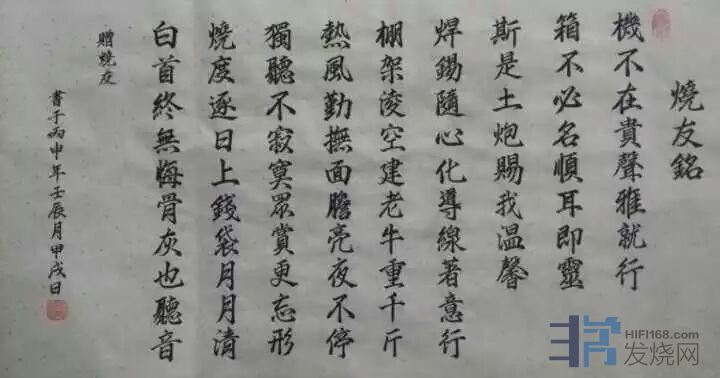 燒友銘
機不在貴聲雅就行
箱不必名順耳即靈
斯是土炮賜我温馨
焊錫隨心化導線著意行
棚架淩空建老牛重千斤
熱風勤撫面膽亮夜不停
獨聽不寂寞眾賞更忘形
燒度逐日上錢袋月月清
白首終無悔骨灰也聽音
贈燒友
書于丙申年壬辰月甲戌日
HIFI168.com
发烧网